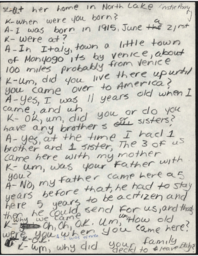 at her home in North Lake
K- when were you born?
A- I was born in 1915, June 2,
K- were at?
A- In, Italy, town a little town
of Monyogo, its by venice, about
100 miles probably from venice
K- Um, did you live there up until
you came over to America?
A- Yes, I was 11 years old when I
came, and uh
K- OK, um, did you or do you
have any brother's or sisters?
A- yes, at the time I had 1
brother and 1 sister, The 3 of us
came here with my mother
K- um, was your Father with
you?
A- No, my Father came here a 5
years before that, he had to stay
here 5 years to be a citizen and
then he could send for us, and
we came
K- Oh, Oh, OK, um, How old
were you when you came here?
K- OK
K- um, why did your family